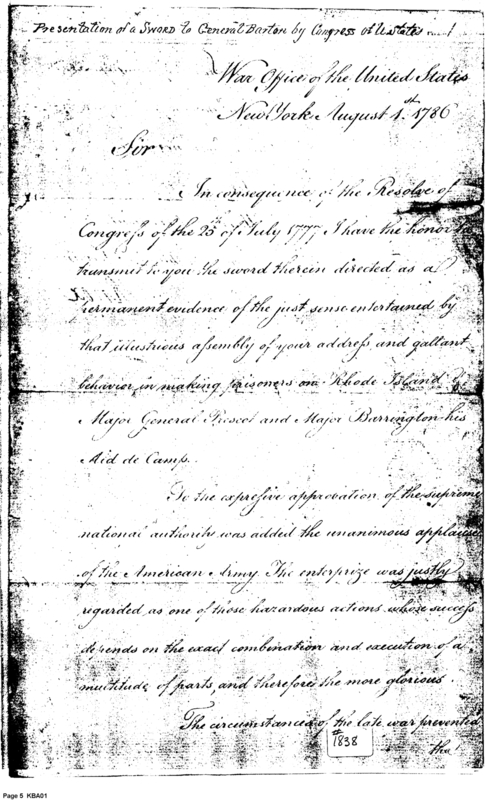 Presentation of a SWORD to General Barton by Congress of U States
War Office of the United States
New York August 1st 1786
Sir
In consequence of the Resolve of
Congress of the 25 of July 1777 I have the honor to
transmit to you the sword therein directed as a
permanent evidence of the just sense entertained by
that illustrious assembly of your address and gallant
behavior in making prisoners on Rhode Island
Major General Prescot and Major Barrington his
Aid de Camp.
To the expressive approbation of the supreme
national authority was added the unanimous applause
of the American Army. The enterprize was justly
regarded as one of those hazardous actions whose success
depends on the exact combination and execution of a
multitude of parts, and therefore the more glorious.
The circumstances of the late war prevented
the
# 1838
Page 5 KBA01